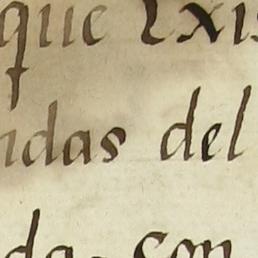 que Exis
ndas del
da. con